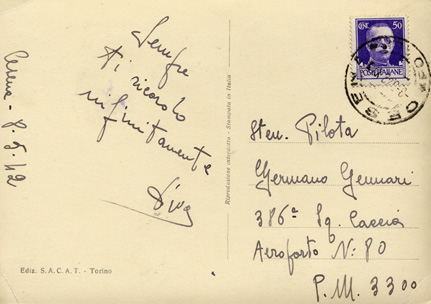 Cesena - 8. 5. 42
Sempre
ti ricordo
infinitamente
Diva
Ediz. S. A. C. A. T. - Torino
Riproduzione interdetta - Stampata in Italia
CENT. 50
POSTE ITALIANE
Sten. Pilota
Germano Gennari
386ª Sq. Caccia
Aeroporto N: 80
P. M. 3300